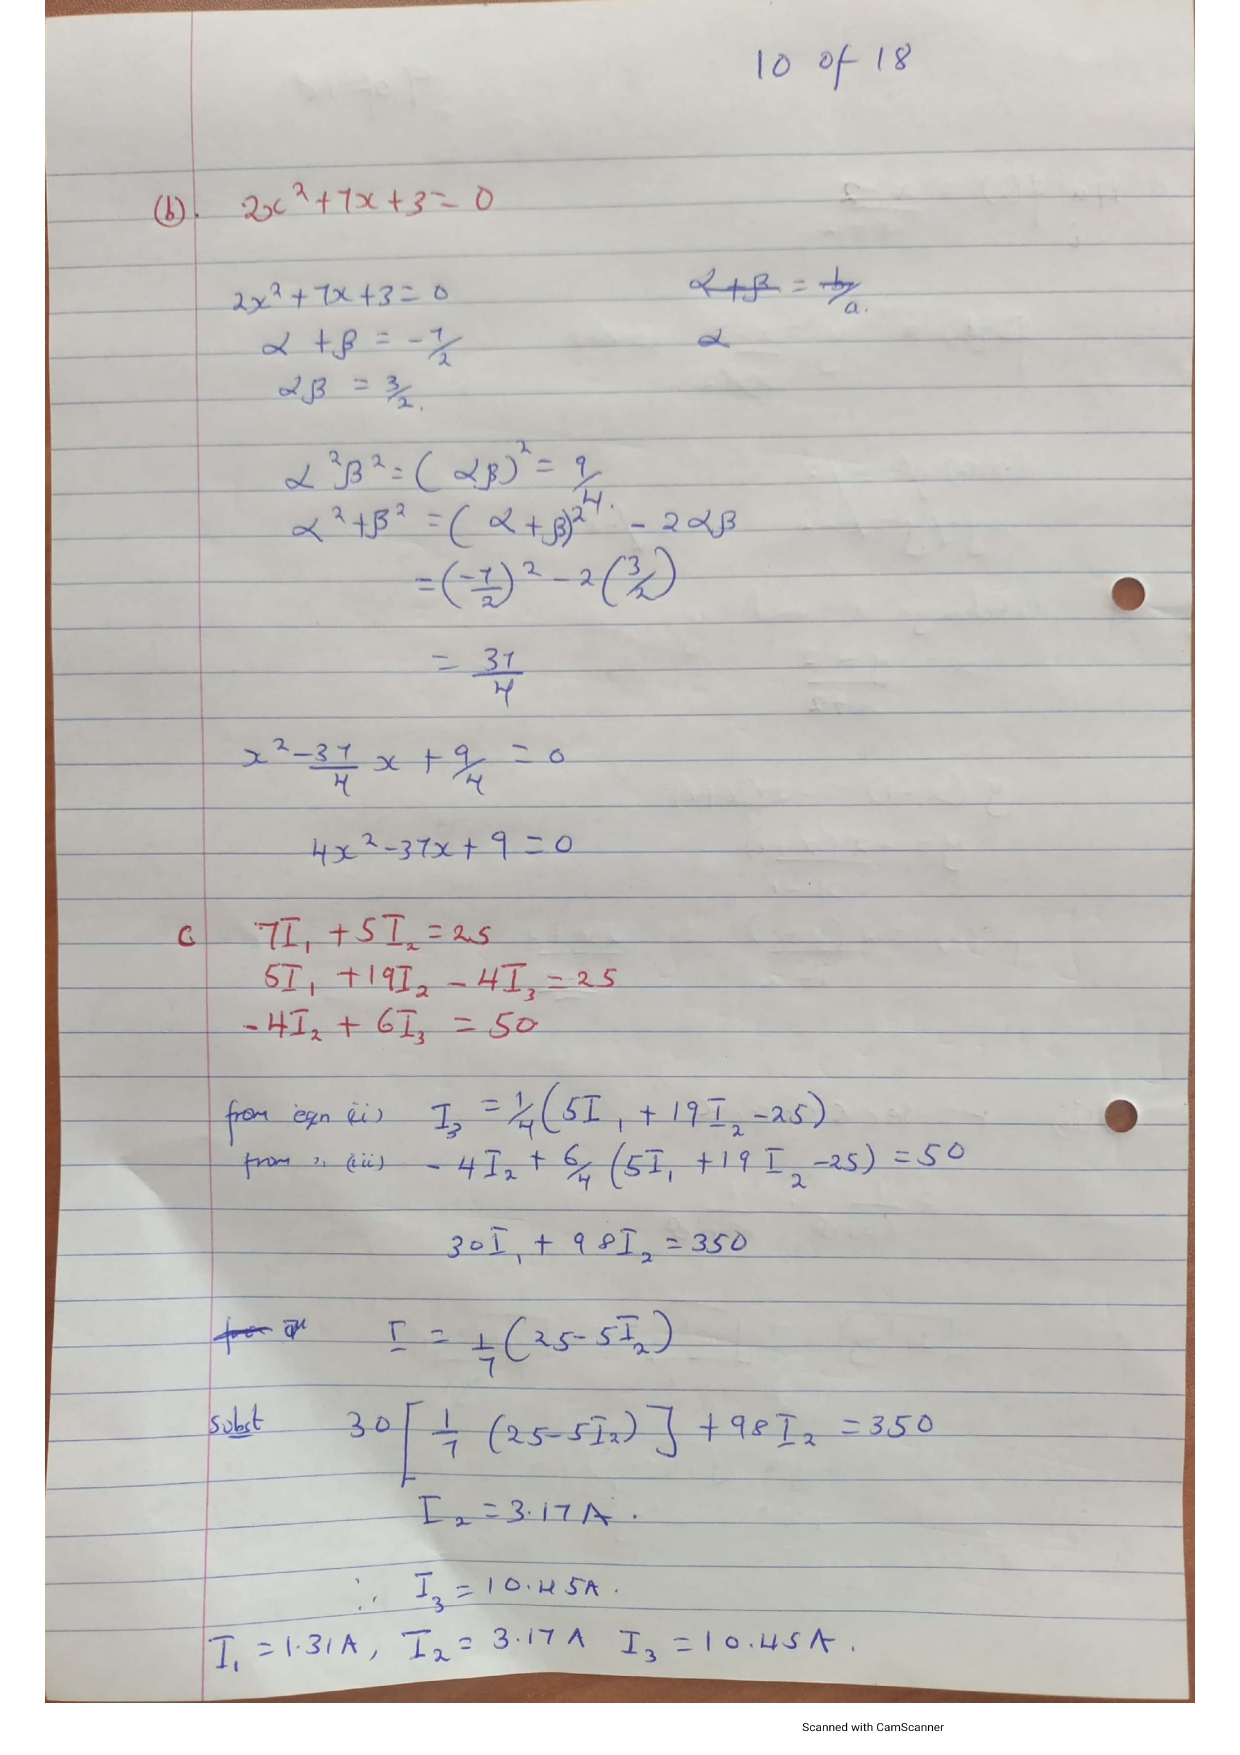 10 of 18
(b). 2x²+7x+3=0
2x²+7x+3=0
α+β = b/a.
α+β = -7/2
α
αβ = 3/2.
α²β²=(αβ)²=9/4.
α²+β²=(α+β)² - 2αβ
=(-7/2)²-2(3/2)
= 37/4
x²-37/4 x + 9/4 = 0
4x²-37x+9=0
C 7I₁+5I₂=25
5I₁+19I₂-4I₃=25
-4I₂+6I₃=50
from eqn (ii) I₃=1/4(5I₁+19I₂-25)
from ,, (iii) -4I₂+6/4(5I₁+19I₂-25)=50
30I₁+98I₂=350
I = 1/7(25-5I₂)
Subst 30[1/7(25-5I₂)]+98I₂=350
I₂=3.17A.
∴ I₃=10.45A.
I₁=1.31A, I₂=3.17A I₃=10.45A.
Scanned with CamScanner